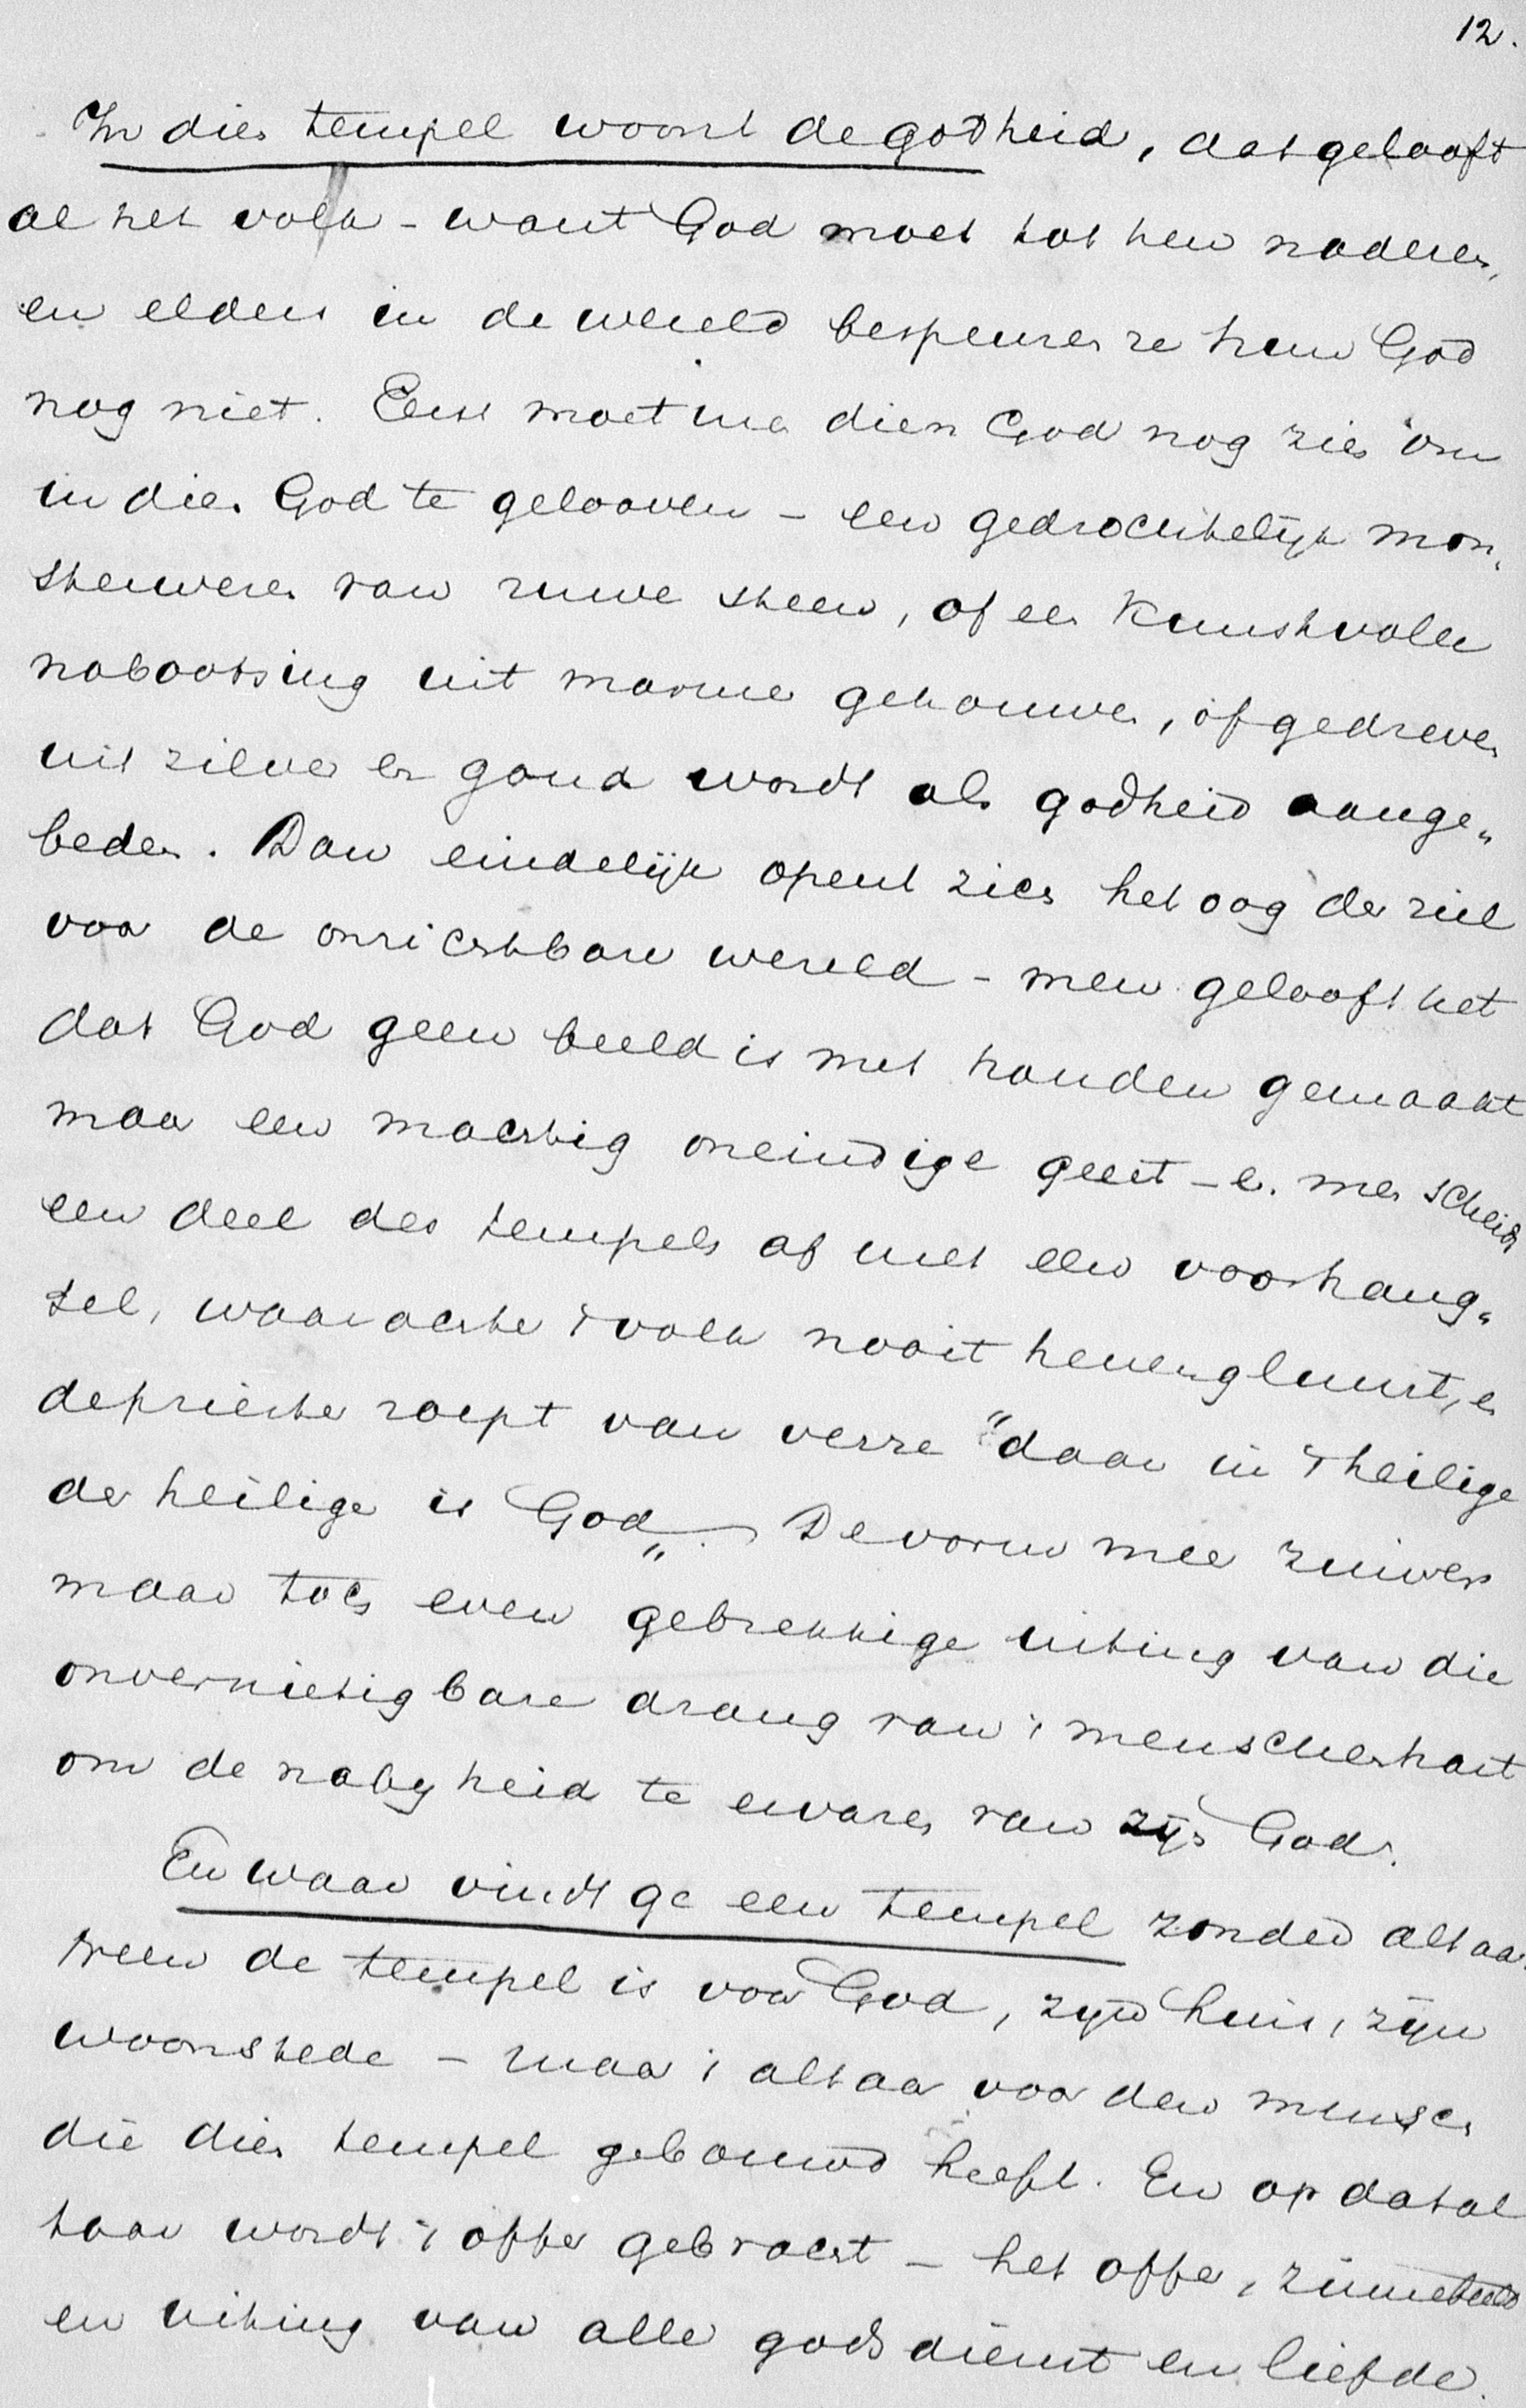 12.
In dien tempel woont de godheid, dat gelooft
al het volk - want God moet tot hen naderen,
en elders in de wereld bespeuren ze hun God
nog niet. Eerst moet men dien God nog zien om
in dien God te gelooven - een gedrochtelijk mon„
sterwezen van ruwe steen, of een kunstvolle
nabootsing uit marmer gehouwen, of gedreven
uit zilver en goud wordt als godheid aange„
beden. Dan eindelijk opent zich het oog der ziel
voor de onzichtbare wereld - men gelooft het
dat God geen beeld is met handen gemaakt
maar een machtig oneindige geest - en men scheidt
een deel des tempels af met een voorhang„
sel, waarachter 't volk nooit henengluurt, en
de priester roept van verre "daar in 't heilige
der heilige is God„. De vorm mee zuiver
maar toch even gebrekkige uiting van die
onvernietigbare drang van 't menschenhart
om de nabyheid te ervaren van zijn God.
En waar vindt ge een tempel zonder altaar.
Neen de tempel is voor God, zijn huis, zijn
woonstede - maar 't altaar voor den mensch
die dien tempel gebouwd heeft. En op dat al
taar wordt 't offer gebracht - het offer, zinnebeeld
en uiting van alle godsdienst en liefde.